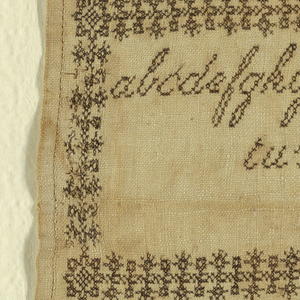 abcdefgh
tu